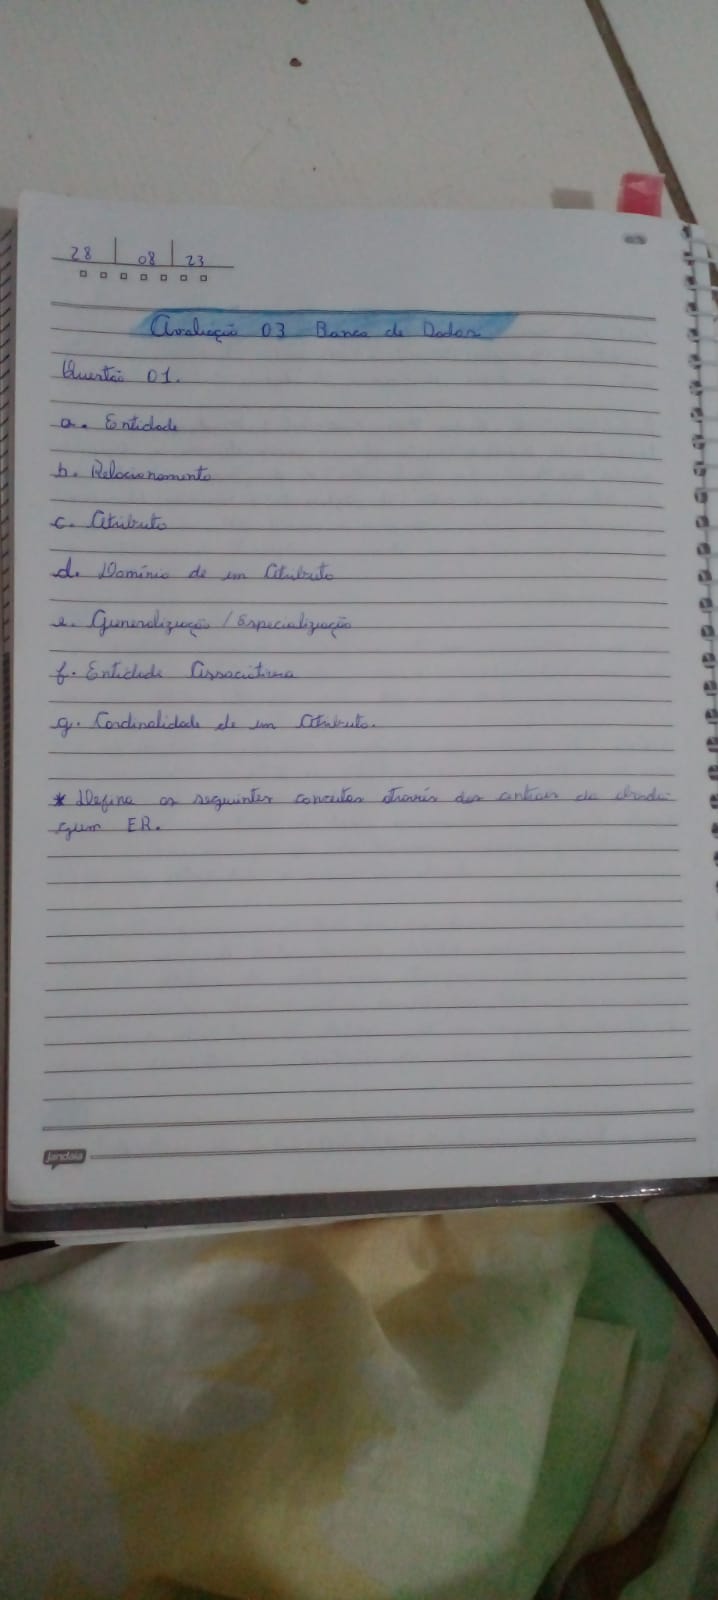 28 | 08 | 23
Avaliação 03 Banco de Dados
Questão 01.
a. Entidade
b. Relacionamento
c. Atributo
d. Domínio de um Atributo
e. Generalização / Especialização
f. Entidade Associativa
g. Cardinalidade de um Atributo.
* Defina os seguintes conceitos através dos da aborda
gem ER.
jandaia